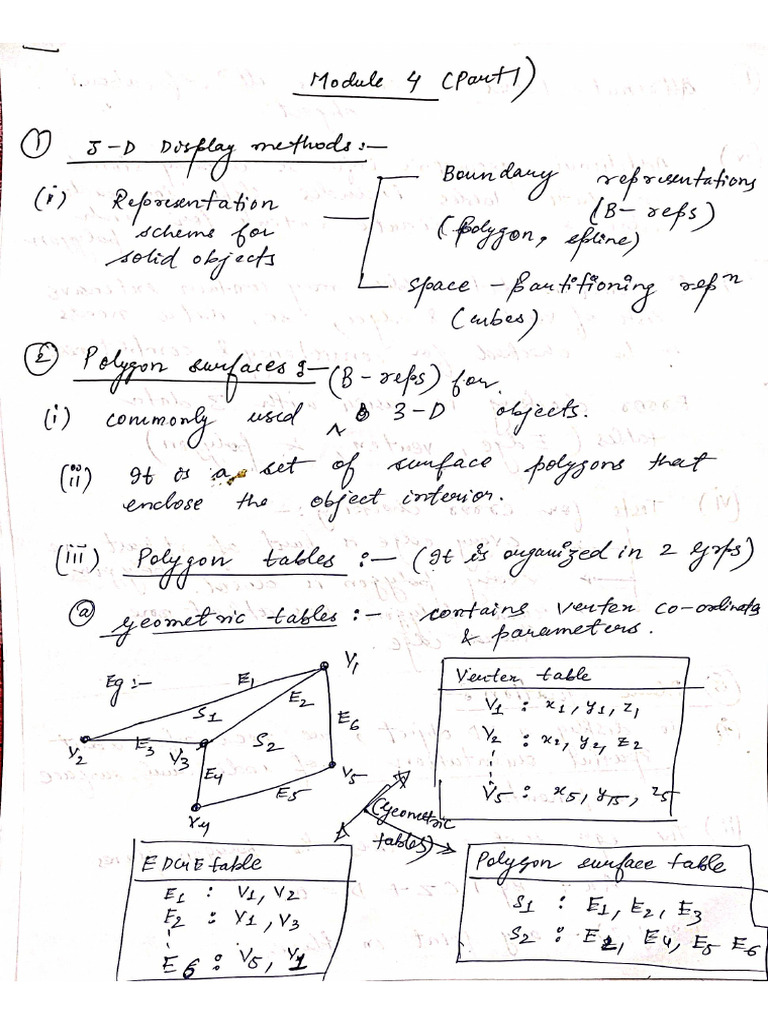 Module 4 (Part 1)
① 3-D Display methods :-
(i) Representation scheme for solid objects
Boundary representations (B-reps)
(polygon, spline)
Space - Partitioning repⁿ
(cubes)
② Polygon surfaces :- (B-reps) for
(i) commonly used ^ 3-D objects.
(ii) It is a set of surface polygons that
enclose the object interior.
(iii) Polygon tables :- (It is organized in 2 Grps)
ⓐ geometric tables :- contains vertex co-ordinates
& parameters.
Eg :-
V1
E1
S1
E2
E6
V2
E3
V3
S2
E4
V5
E5
V4
Vertex table
V1 : x1, y1, z1
V2 : x2, y2, z2
V5 : x5, y5, z5
(Geometric
tables)
EDGE table
E1 : V1, V2
E2 : V1, V3
E6 : V5, V1
Polygon surface table
S1 : E1, E2, E3
S2 : E2, E4, E5 E6